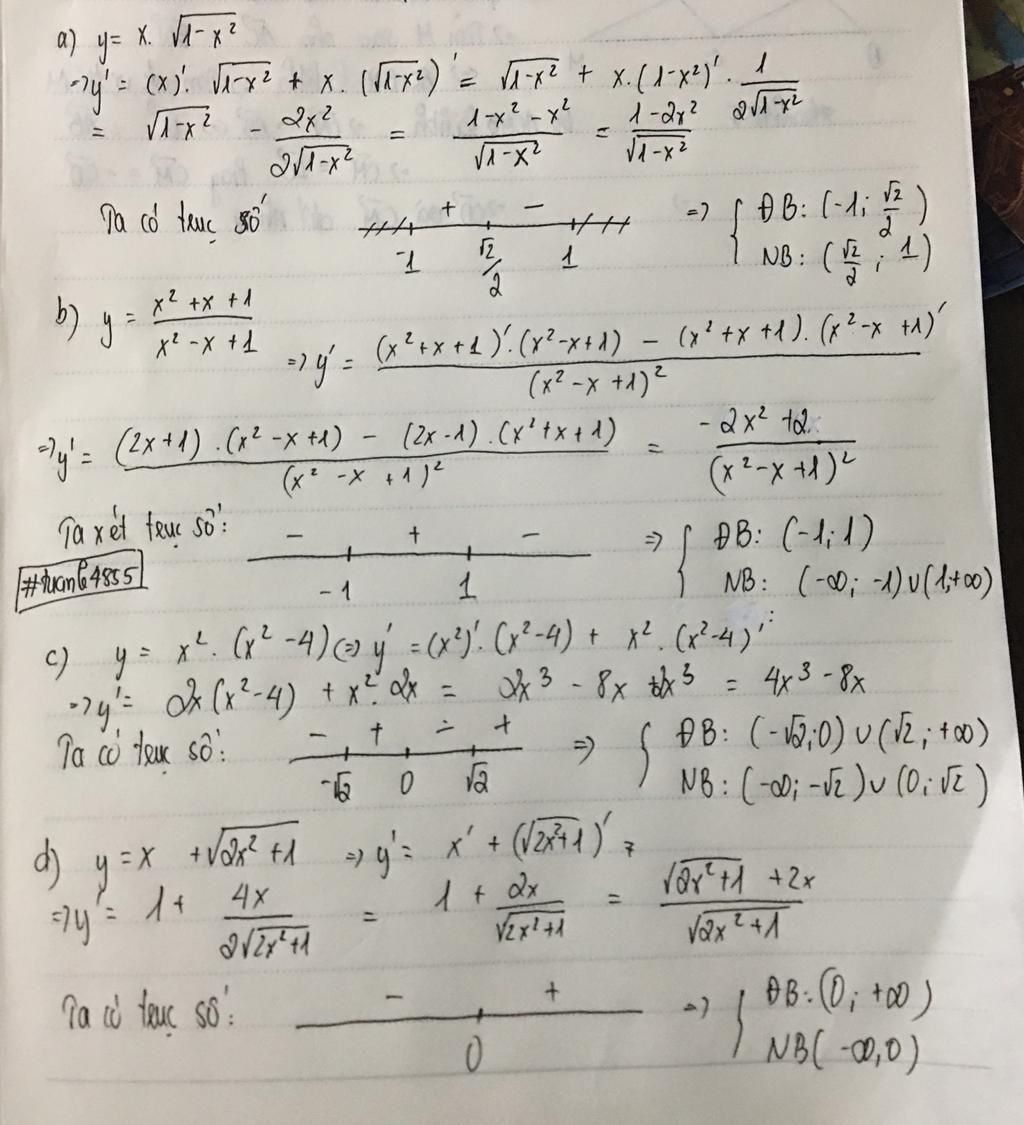 a) y = x. √(1-x²)
=> y' = (x)'. √(1-x²) + x. (√(1-x²))' = √(1-x²) + x.(1-x²)'. 1/(2√(1-x²))
= √(1-x²) - 2x²/(2√(1-x²)) = (1-x²-x²)/√(1-x²) = (1-2x²)/√(1-x²)
Ta có trục số + - => { ĐB: (-1; √2/2)
-1 √2/2 1 NB: (√2/2; 1)
b) y = (x²+x+1)/(x²-x+1) => y' = ((x²+x+1)'.(x²-x+1) - (x²+x+1).(x²-x+1)')/(x²-x+1)²
=> y' = ((2x+1).(x²-x+1) - (2x-1).(x²+x+1))/(x²-x+1)² = (-2x²+2)/(x²-x+1)²
Ta xét trục số: - + - => { ĐB: (-1;1)
-1 1 NB: (-∞; -1)∪(1;+∞)
c) y = x².(x²-4) (=> y' = (x²)'.(x²-4) + x².(x²-4)'
=> y' = 2x(x²-4) + x².2x = 2x³ - 8x + 2x³ = 4x³ - 8x
Ta có trục số: - + - + => { ĐB: (-√2;0)∪(√2;+∞)
-√2 0 √2 NB: (-∞;-√2)∪(0;√2)
d) y = x + √(2x²+1) => y' = x' + (√(2x²+1))'
=> y' = 1 + 4x/(2√(2x²+1)) = 1 + 2x/√(2x²+1) = (√(2x²+1) + 2x)/√(2x²+1)
Ta có trục số: - + => { ĐB: (0; +∞)
0 NB(-∞,0)